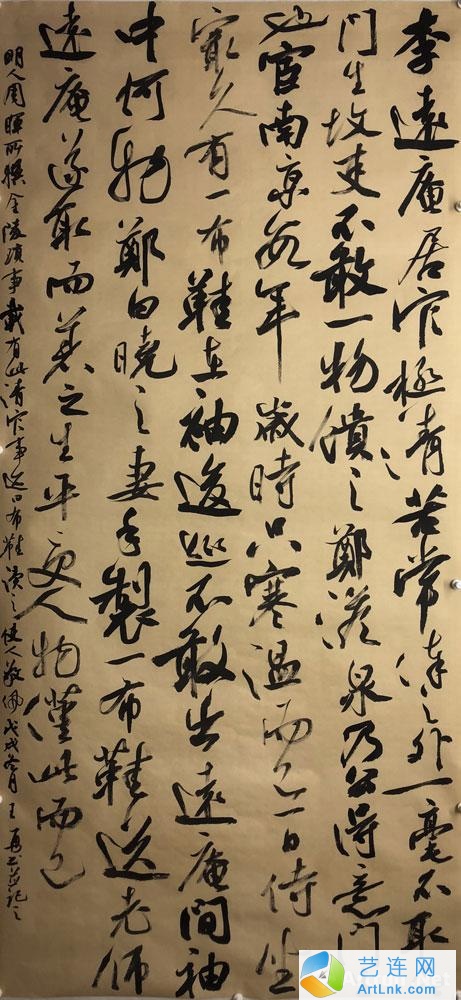 李遠庵居官極清苦常俸之外一毫不取
門生故吏不敢一物饋之鄭澹泉乃公得意門
也官南京數年歲時只寒溫而已一日侍坐
最久有一布鞋在袖逡巡不敢出遠庵問袖
中何物鄭曰曉之妻手製一布鞋送老師
遠庵遂取而着之生平受人物僅此而已
明人周暉所撰金陵瑣事載有此清官事布鞋使人敬佩戊戌冬月王並記之
艺连网
ArtLnk.com